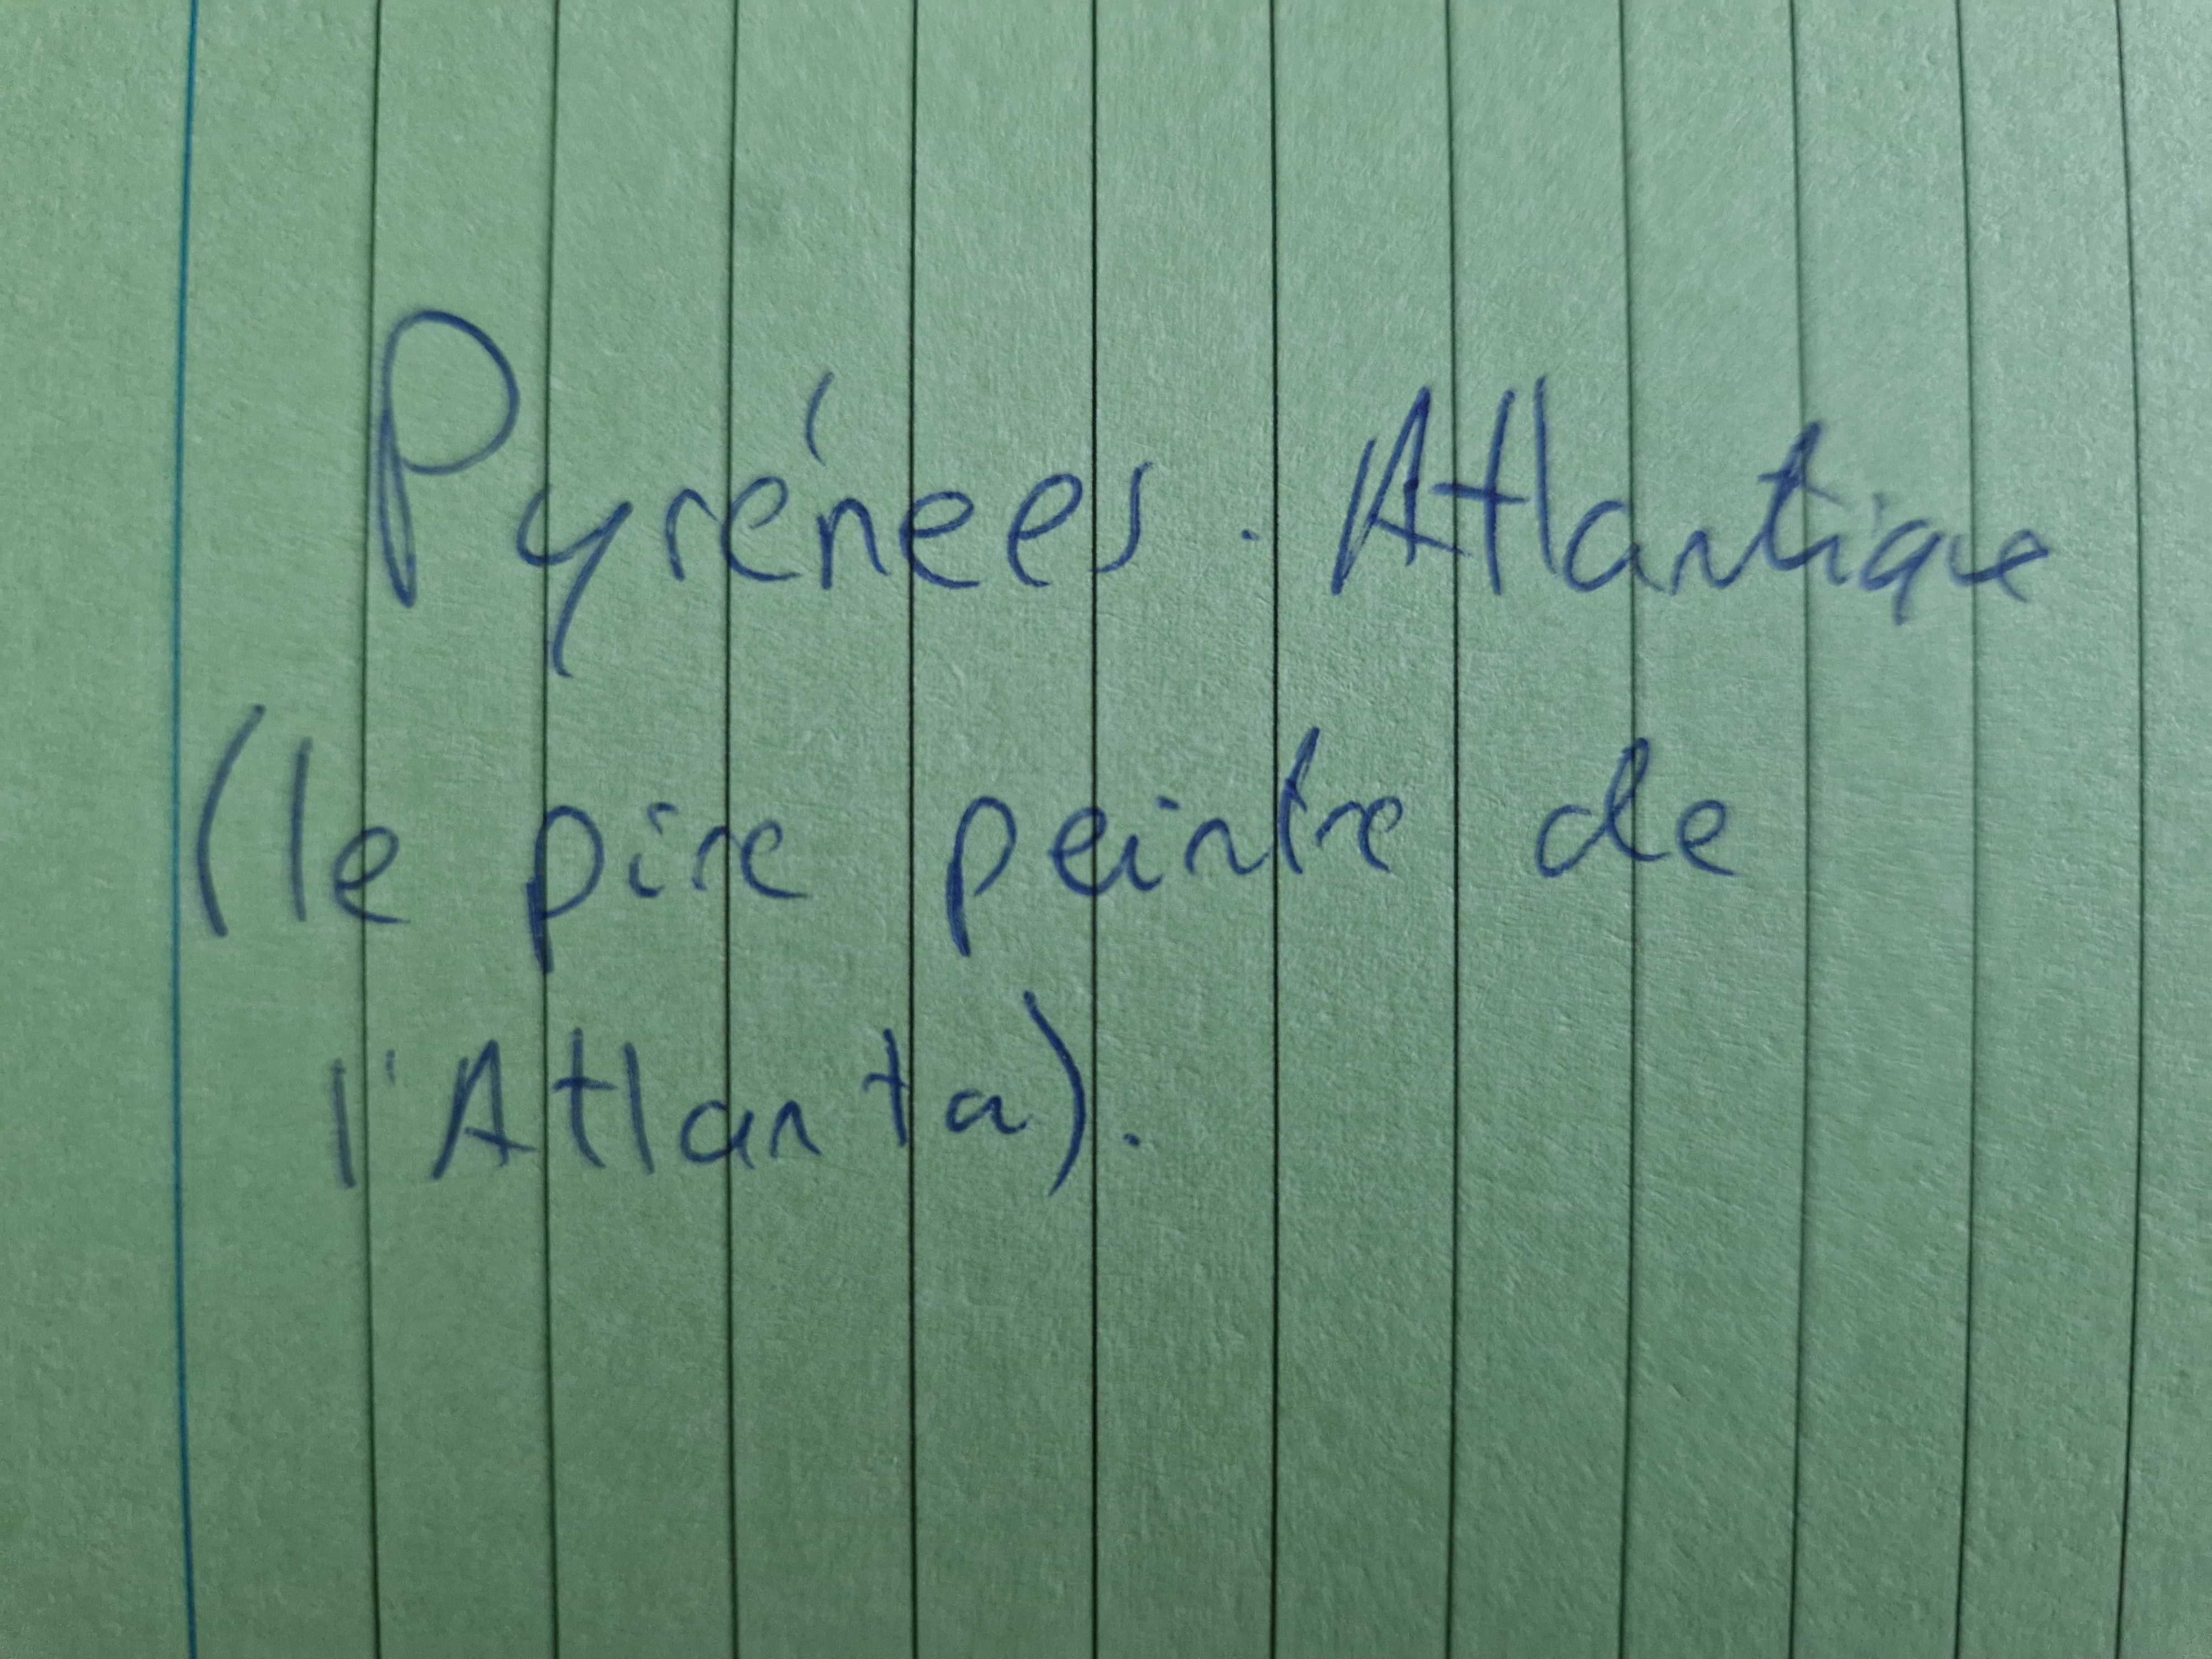 Pyrénees. Atlantique
(le pire peintre de
l'Atlanta).